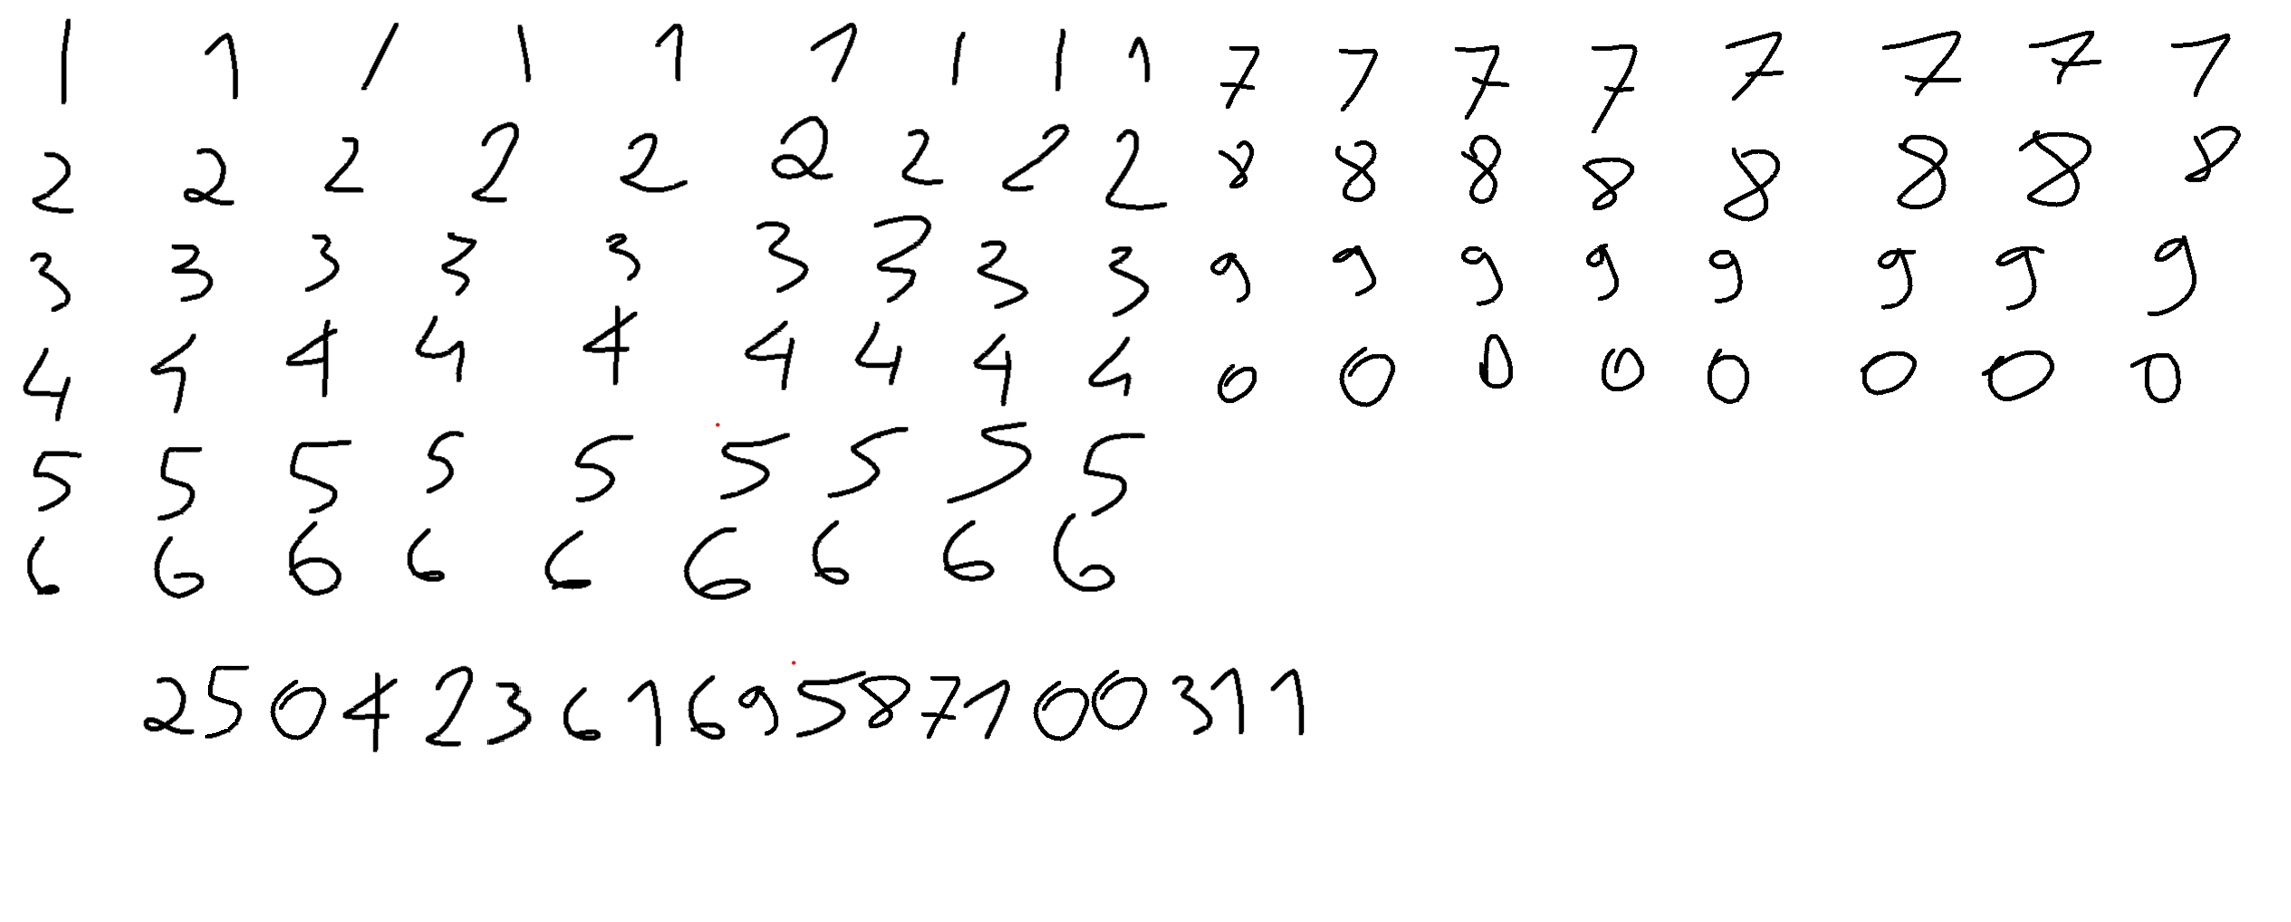 1 1 1 1 1 1 1 1 1 7 7 7 7 7 7 7 7
2 2 2 2 2 2 2 2 2 8 8 8 8 8 8 8 8
3 3 3 3 3 3 3 3 3 9 9 9 9 9 9 9 9
4 4 4 4 4 4 4 4 4 0 0 0 0 0 0 0 0
5 5 5 5 5 5 5 5 5
6 6 6 6 6 6 6 6 6
2504236169587100311